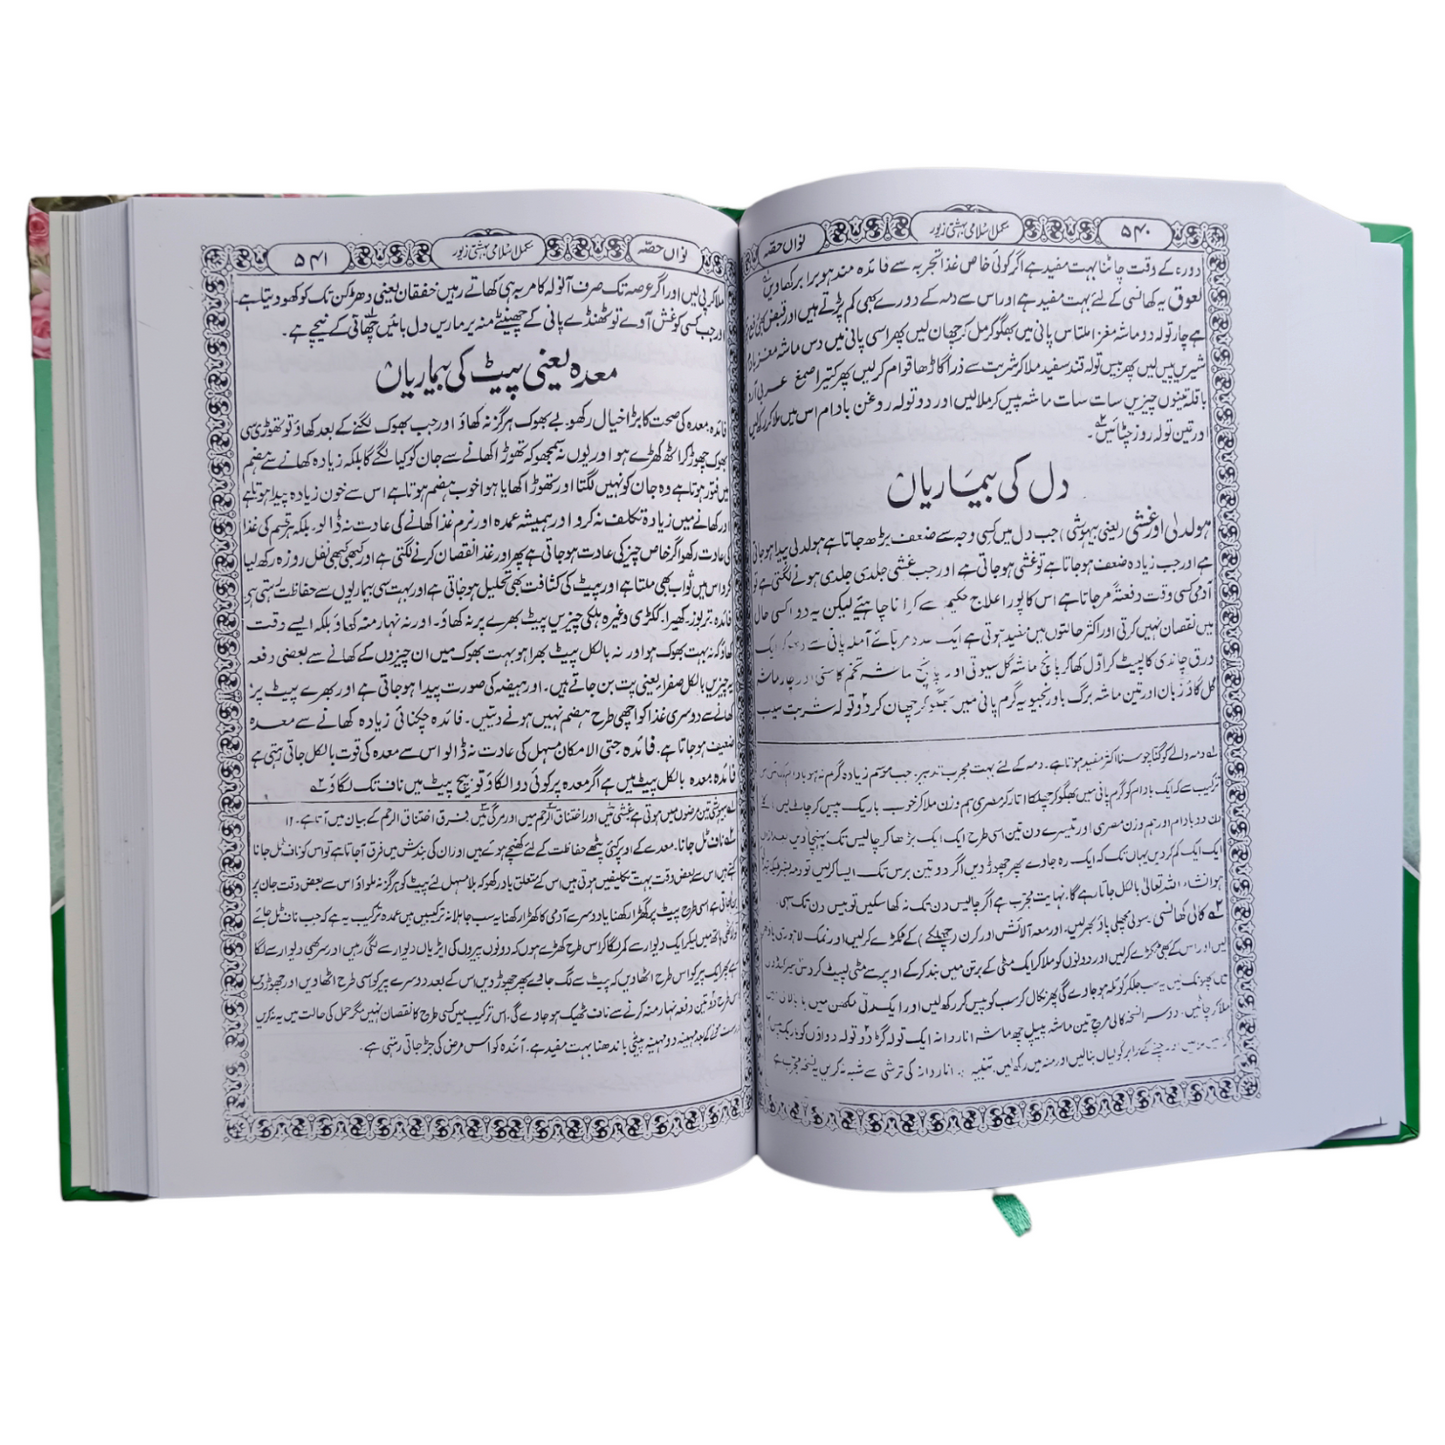 ۵۴۰
مکمل اسلامی بہشتی زیور
نواں حصّہ
دورہ کے وقت چاٹنا بہت مفید ہے اگر کوئی خاص غذا تجربہ سے فائدہ مند ہو برابر کھاویں
لعوق یہ کھانسی کے لئے بہت مفید ہے اور اس سے دمہ کے دورے بھی کم پڑتے ہیں اور قبض
ہے چار تولہ دو ماشہ مغز املتاس پانی میں بھگو کر مل کر چھان لیں پھر اسی پانی میں دس ماشہ مغز بادام
شیریں پیس لیں پھر بیس تولہ قند سفید ملا کر شربت سے ذرا گاڑھا قوام کر لیں پھر کتیرا صمغ عربی آرد
باقلہ تینوں چیزیں سات سات ماشہ پیس کر ملا لیں اور دو تولہ روغن بادام اس میں ملا کر رکھ لیں
اور تین تولہ روز چٹائیں۔
دل کی بیماریاں
ہولدلی اور غشی (یعنی بیہوشی) جب دل میں کسی وجہ سے ضعف بڑھ جاتا ہے ہولدلی پیدا ہوجاتی
ہے اور جب زیادہ ضعف ہوجاتا ہے تو غشی ہوجاتی ہے اور جب غشی جلدی جلدی ہونے لگتی ہے تو
آدمی کسی وقت دفعتہً مر جاتا ہے اس کا پورا علاج حکیم سے کرانا چاہئے لیکن یہ دوا کسی حال
میں نقصان نہیں کرتی اور اکثر حالتوں میں مفید ہوتی ہے ایک عدد مربائے آملہ پانی سے دھو کر ایک
ورق چاندی کا لپیٹ کر اول کھا کر پانچ ماشہ گل سیوتی اور پانچ ماشہ تخم کاسنی اور چار ماشہ
گل گاؤزبان اور تین ماشہ برگ بادرنجبویہ گرم پانی میں بھگو کر چھان کر دو تولہ شربت سیب
لہ دمہ والے کو گنّا چوسنا اکثر مفید ہوتا ہے۔ دمہ کے لئے بہت مجرب تدبیر: جب موسم زیادہ گرم نہ ہو بادام
ترکیب سے کہ ایک بادام کو گرم پانی میں بھگو کر چھلکا اتار کر مصری ہم وزن ملا کر خوب باریک پیس کر چاٹ لیں
دن دو بادام اور ہم وزن مصری اور تیسرے دن تین اسی طرح ایک ایک بڑھا کر چالیس تک پہنچا دیں
ایک ایک کم کر دیں یہاں تک کہ ایک رہ جاوے پھر چھوڑ دیں اگر دو تین برس تک ایسا کر لیں تو
ہو انشاء اللہ تعالیٰ بالکل جاتا رہے گا۔ نہایت مجرب ہے اگر چالیس دن تک نہ کھا سکیں تو بیس دن تک سہی
کالی کھانسی
لیں اور دونوں کو ملا کر ایک مٹی کے برتن میں بند کر کے اوپر سے مٹی لپیٹ کر
جل کر کوئلہ ہوجاوے گی پھر نکال کر سب کو پیس کر رکھ لیں اور ایک رتی مکھن میں یا بالائی میں
ملا کر چاٹیں۔ دوسرا نسخہ کالی مرچ تین ماشہ پیپل چھ ماشہ انار دانہ ایک تولہ گڑ دو تولہ دواؤں کو باریک
چنے کے برابر گولیاں بنا لیں اور منہ میں رکھیں۔ تنبیہ: انار دانہ کی ترشی سے شبہ نہ کریں یہ نسخہ مجرب ہے
نواں حصّہ
مکمل اسلامی بہشتی زیور
۵۴۱
ملا کر پی لیں اور اگر عرصہ تک صرف آنولہ کا مربہ ہی کھاتے رہیں خفقان یعنی دھڑکن تک کو کھو دیتا ہے
اور جب کسی کو غش آوے تو ٹھنڈے پانی کے چھینٹے منہ پر ماریں دل بائیں چھاتی کے نیچے ہے۔
معدہ یعنی پیٹ کی بیماریاں
فائدہ: معدہ کی صحت کا بڑا خیال رکھو بے بھوک ہرگز نہ کھاؤ اور جب بھوک لگنے کے بعد کھاؤ تو تھوڑی سی
بھوک چھوڑ کر اٹھ کھڑے ہو اور یوں نہ سمجھو کہ تھوڑا کھانے سے جان کو کیا لگے گا بلکہ زیادہ کھانے سے ہضم
میں فتور ہوتا ہے وہ جان کو نہیں لگتا اور تھوڑا کھایا ہوا خوب ہضم ہوتا ہے اس سے خون زیادہ پیدا ہوتا ہے
اور کھانے میں زیادہ تکلف نہ کرو اور ہمیشہ عمدہ اور نرم غذا کھانے کی عادت نہ ڈالو۔ بلکہ ہر قسم کی غذا
کی عادت رکھو اگر خاص چیز کی عادت ہوجاتی ہے پھر اور غذا نقصان کرنے لگتی ہے اور کبھی کبھی نفل روزہ رکھ لیا
کرو اس میں ثواب بھی ملتا ہے اور پیٹ کی کثافت بھی تحلیل ہوجاتی ہے اور بہت سی بیماریوں سے حفاظت رہتی ہے
فائدہ: تربوز۔ کھیرا۔ ککڑی وغیرہ ہلکی چیزیں پیٹ بھرے پر نہ کھاؤ۔ اور نہ نہار منہ کھاؤ بلکہ ایسے وقت
کھاؤ کہ نہ بہت بھوک ہو اور نہ بالکل پیٹ بھرا ہو بہت بھوک میں ان چیزوں کے کھانے سے بعضی دفعہ
یہ چیزیں بالکل صفرا یعنی پت بن جاتے ہیں۔ اور ہیضہ کی صورت پیدا ہوجاتی ہے اور بھرے پیٹ پر
کھانے سے دوسری غذا کو اچھی طرح ہضم نہیں ہونے دیتیں۔ فائدہ چکنائی زیادہ کھانے سے معدہ
ضعیف ہوجاتا ہے۔ فائدہ حتی الامکان مسہل کی عادت نہ ڈالو اس سے معدہ کی قوت بالکل جاتی رہتی ہے
فائدہ: معدہ بالکل پیٹ میں ہے اگر معدہ پر کوئی دوا لگاؤ تو بیچ پیٹ میں ناف تک لگاؤ
لہ بیہوشی تین مرضوں میں ہوتی ہے غشی میں اور اختناق الرحم میں اور مرگی میں، فرق اختناق الرحم کے بیان میں آتا ہے۔ ۱۲
ناف ٹل جانا۔ معدے کے اوپر کئی پٹھے حفاظت کے لئے کھنچے ہوئے ہیں اور ان کی بندش میں فرق آجاتا ہے تو اس کو ناف ٹل جانا
کہتے ہیں اس سے بعض وقت بہت تکلیفیں ہوتی ہیں اس کے متعلق یاد رکھو کہ بلا مسہل لئے پیٹ کو ہرگز نہ ملواؤ اس سے بعض وقت جان پر
بن جاتی ہے اسی طرح پیٹ پر گھڑا رکھنا یا دوسرے آدمی کا کھڑا رکھنا یہ سب جاہلانہ ترکیبیں ہیں عمدہ ترکیب یہ ہے کہ جب ناف ٹل جائے
ہاتھ میں لیکر ایک دیوار سے کمر لگا کر اس طرح کھڑے ہوں کہ دونوں پیروں کی ایڑیاں دیوار سے لگی رہیں اور سر بھی دیوار سے لگا
رہے پھر ایک پیر کو اس طرح اٹھاویں کہ پیٹ سے لگ جاوے پھر چھوڑ دیں اس کے بعد دوسرے پیر کو اسی طرح اٹھا دیں اور چھوڑ دیں
اس طرح دو تین دفعہ نہار منہ کرنے سے ناف ٹھیک ہوجاوے گی، اس ترکیب میں کسی طرح کا نقصان نہیں مگر حمل کی حالت میں یہ نہ کریں
مہینہ دو مہینہ پیٹی باندھنا بہت مفید ہے۔ آئندہ کو اس مرض کی جڑ جاتی رہتی ہے۔